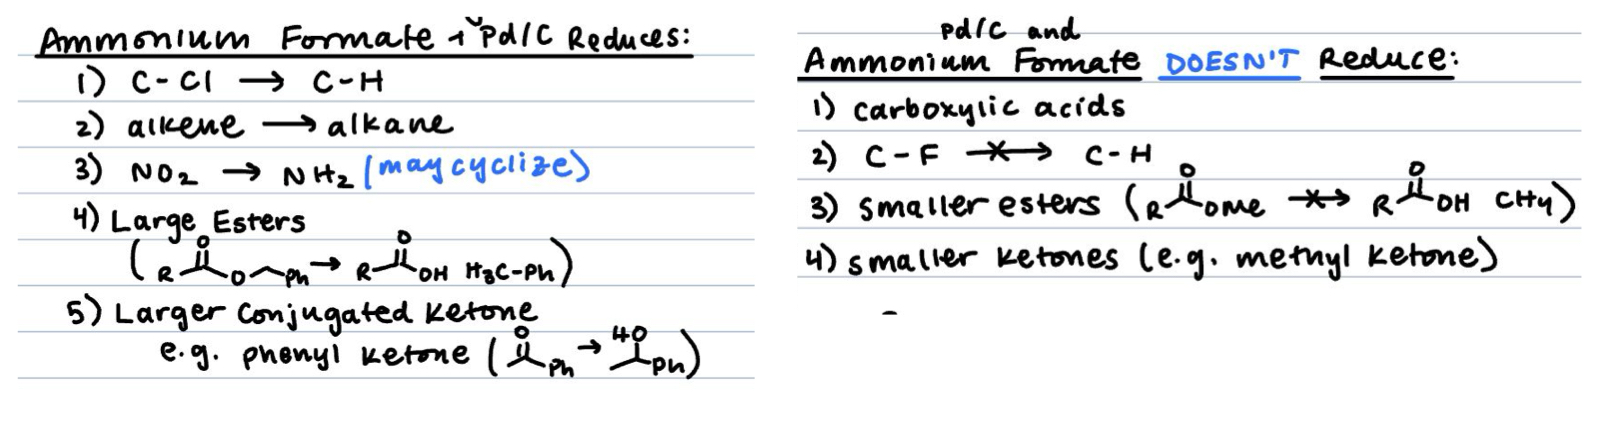 Ammonium Formate + Pd/C Reduces:
1) C-Cl → C-H
2) alkene → alkane
3) NO2 → NH2 (may cyclize)
4) Large Esters
( R O O Ph → R O OH H3C-Ph )
5) Larger conjugated ketone
e.g. phenyl ketone ( O Ph → HO Ph )
Pd/C and
Ammonium Formate DOESN'T Reduce:
1) carboxylic acids
2) C-F ↛ C-H
3) smaller esters ( R O OMe ↛ R O OH CH4 )
4) smaller ketones (e.g. methyl ketone)